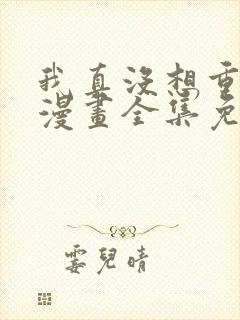 我真沒想重
漫畫全集免
霎兒晴